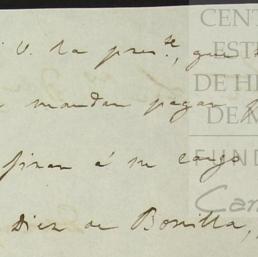 V. la pres.te, que
mandan pagar
giran á su cargo
Diez de Bonilla,
CENT
EST
DE H
DE M
FUND
Car